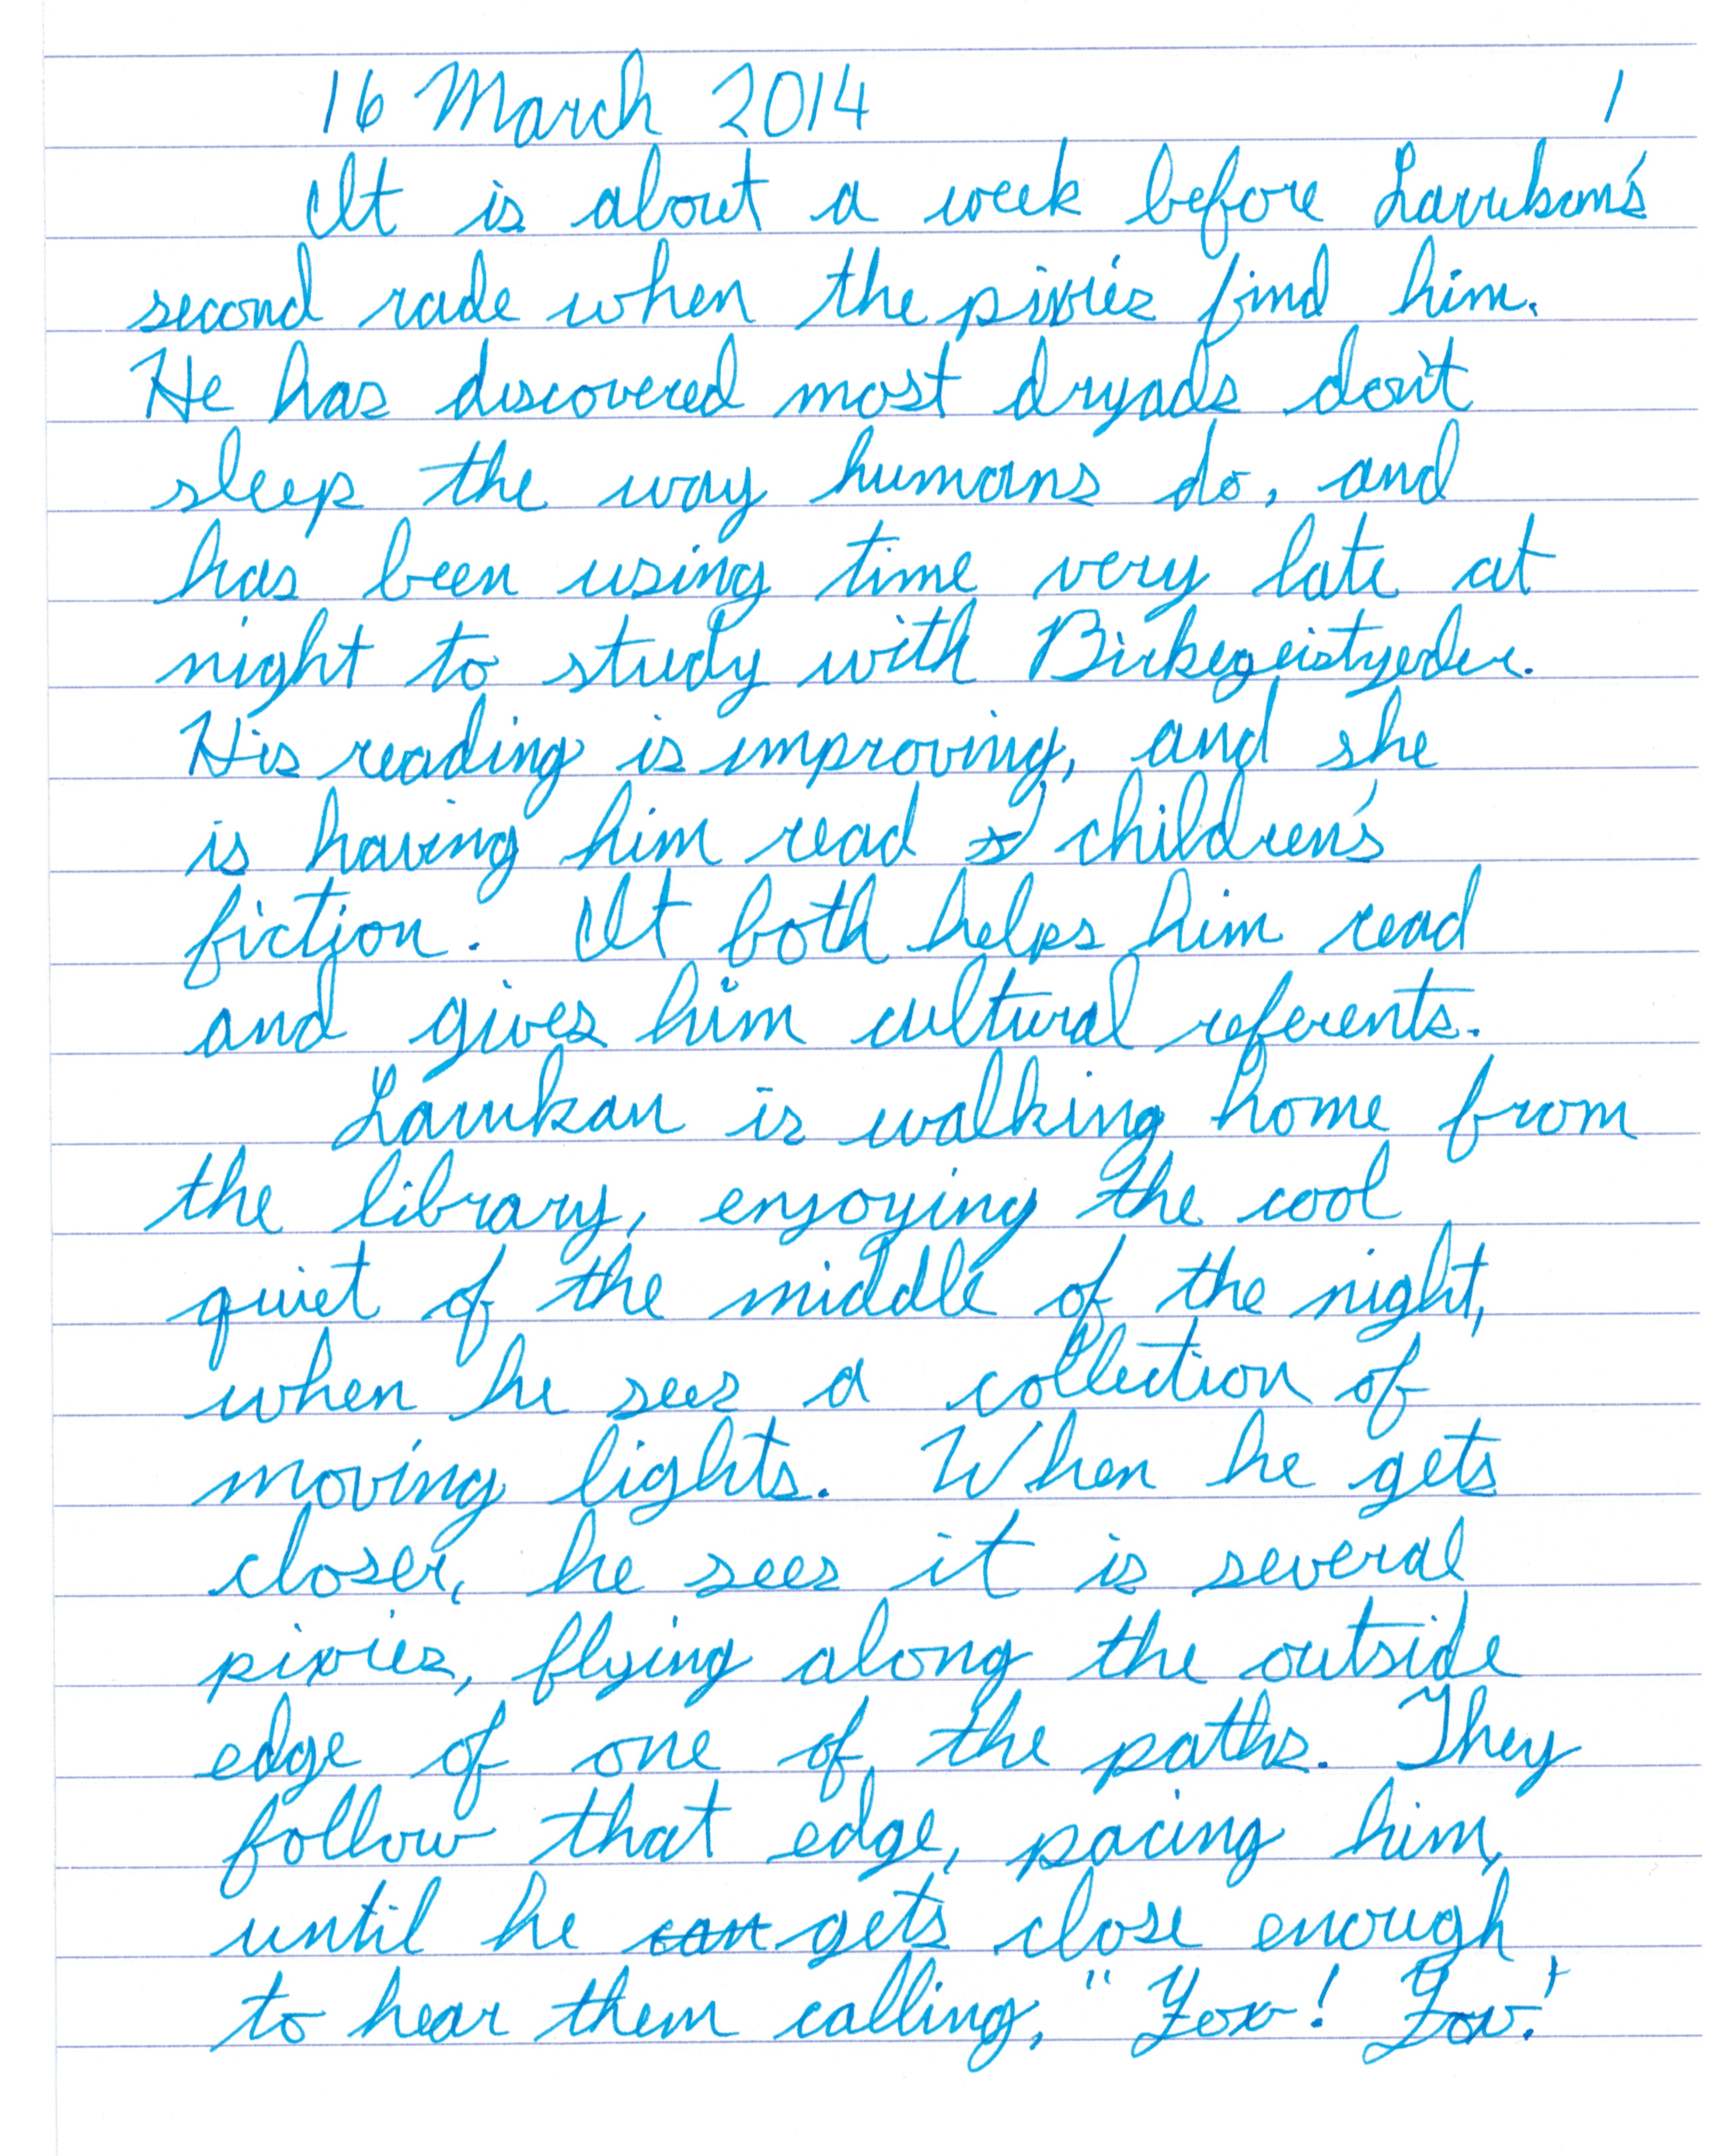 16 March 2014 1
It is about a week before Larukan's
second rade when the pixies find him.
He has discovered most dryads don't
sleep the way humans do, and
has been using time very late at
night to study with Birkegeistyeder.
His reading is improving, and she
is having him read children's
fiction. It both helps him read
and gives him cultural referents.
Larukan is walking home from
the library, enjoying the cool
quiet of the middle of the night,
when he sees a collection of
moving lights. When he gets
closer, he sees it is several
pixies, flying along the outside
edge of one of the paths. They
follow that edge, pacing him,
until he gets close enough
to hear them calling, "Fox! Fox!